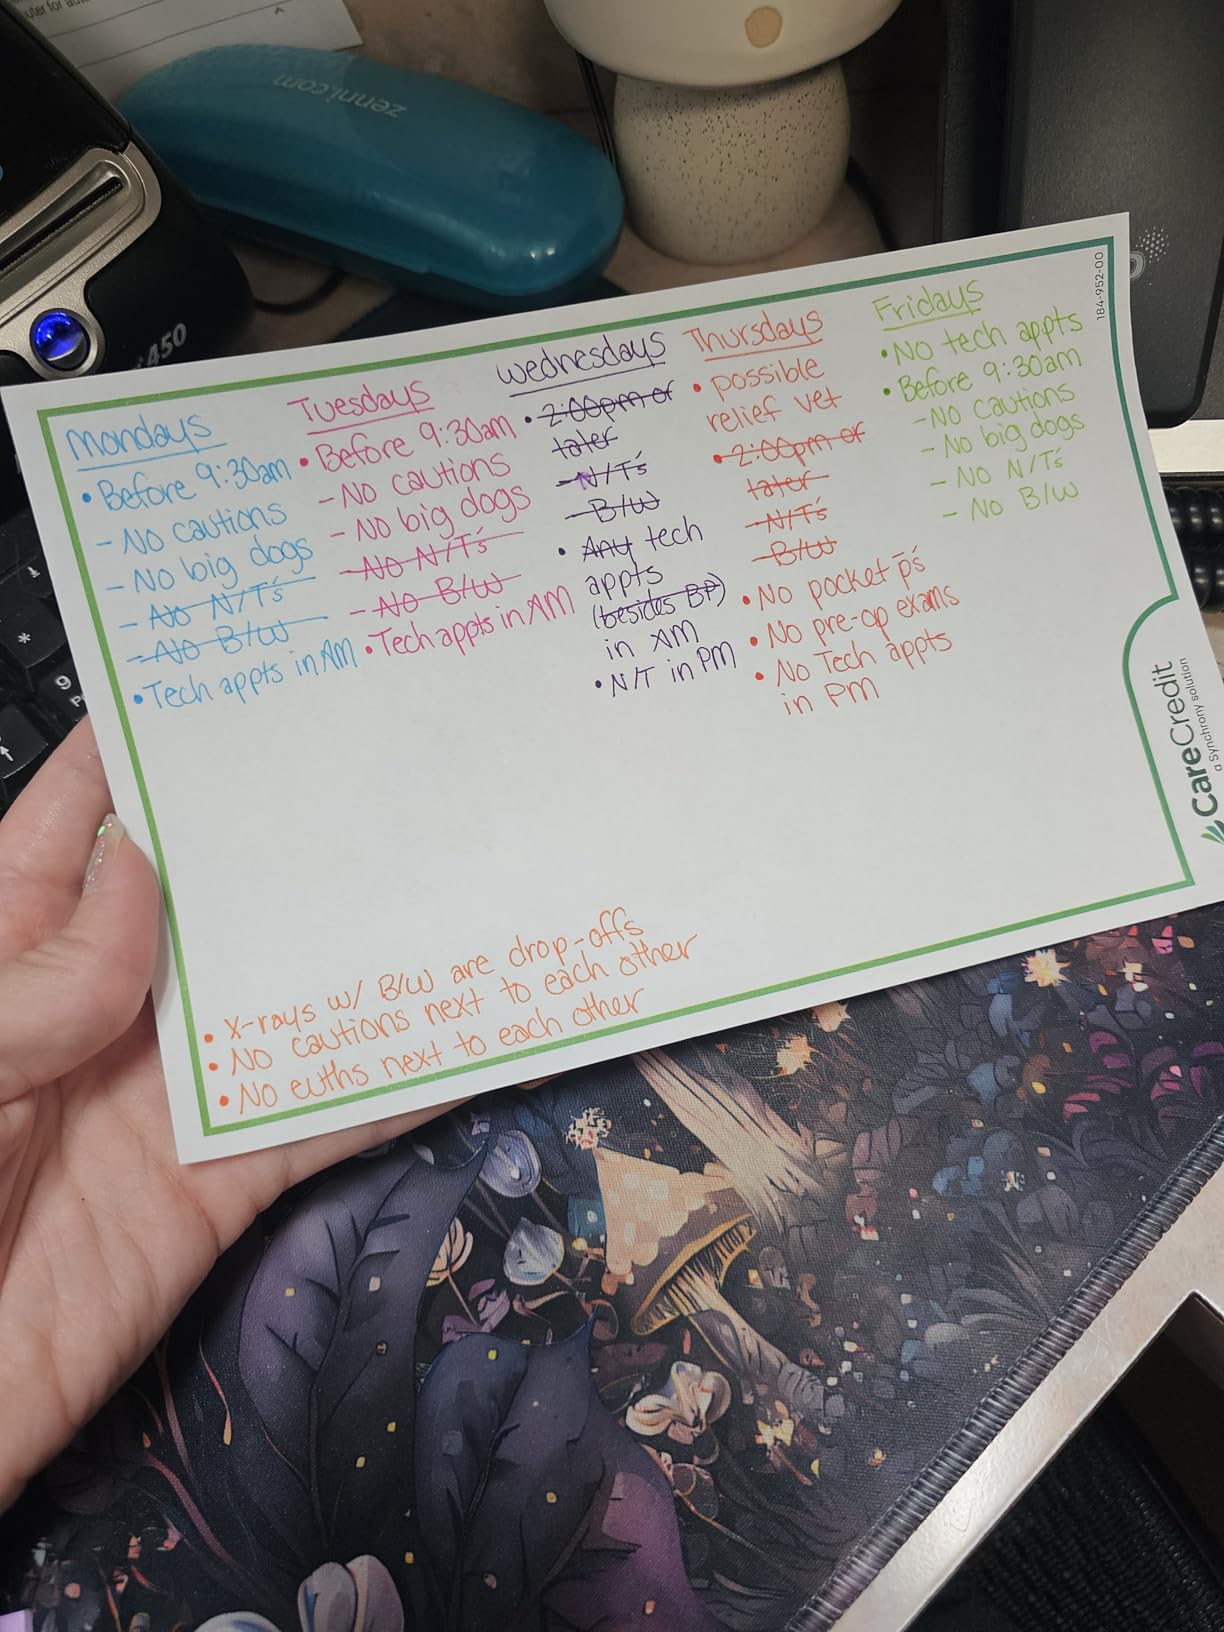 uter for aut
zenni.com
450
*
9
184-952-00
Mondays
• Before 9:30am
- No cautions
- No big dogs
- No N/T's
- No B/W
• Tech appts in AM
Tuesdays
• Before 9:30am
- No cautions
- No big dogs
- No N/T's
- No B/W
• Tech appts in AM
Wednesdays
• 2:00pm or
later
- N/T's
- B/W
• Any tech
appts
(besides BP)
in AM
• N/T in PM
Thursdays
• possible
relief vet
• 2:00pm or
later
- N/T's
- B/W
• No pocket p̄'s
• No pre-op exams
• No Tech appts
in PM
Fridays
• No tech appts
• Before 9:30am
- No cautions
- No big dogs
- No N/T's
- No B/W
• X-rays w/ B/W are drop-offs
• No cautions next to each other
• No euths next to each other
CareCredit
a Synchrony solution